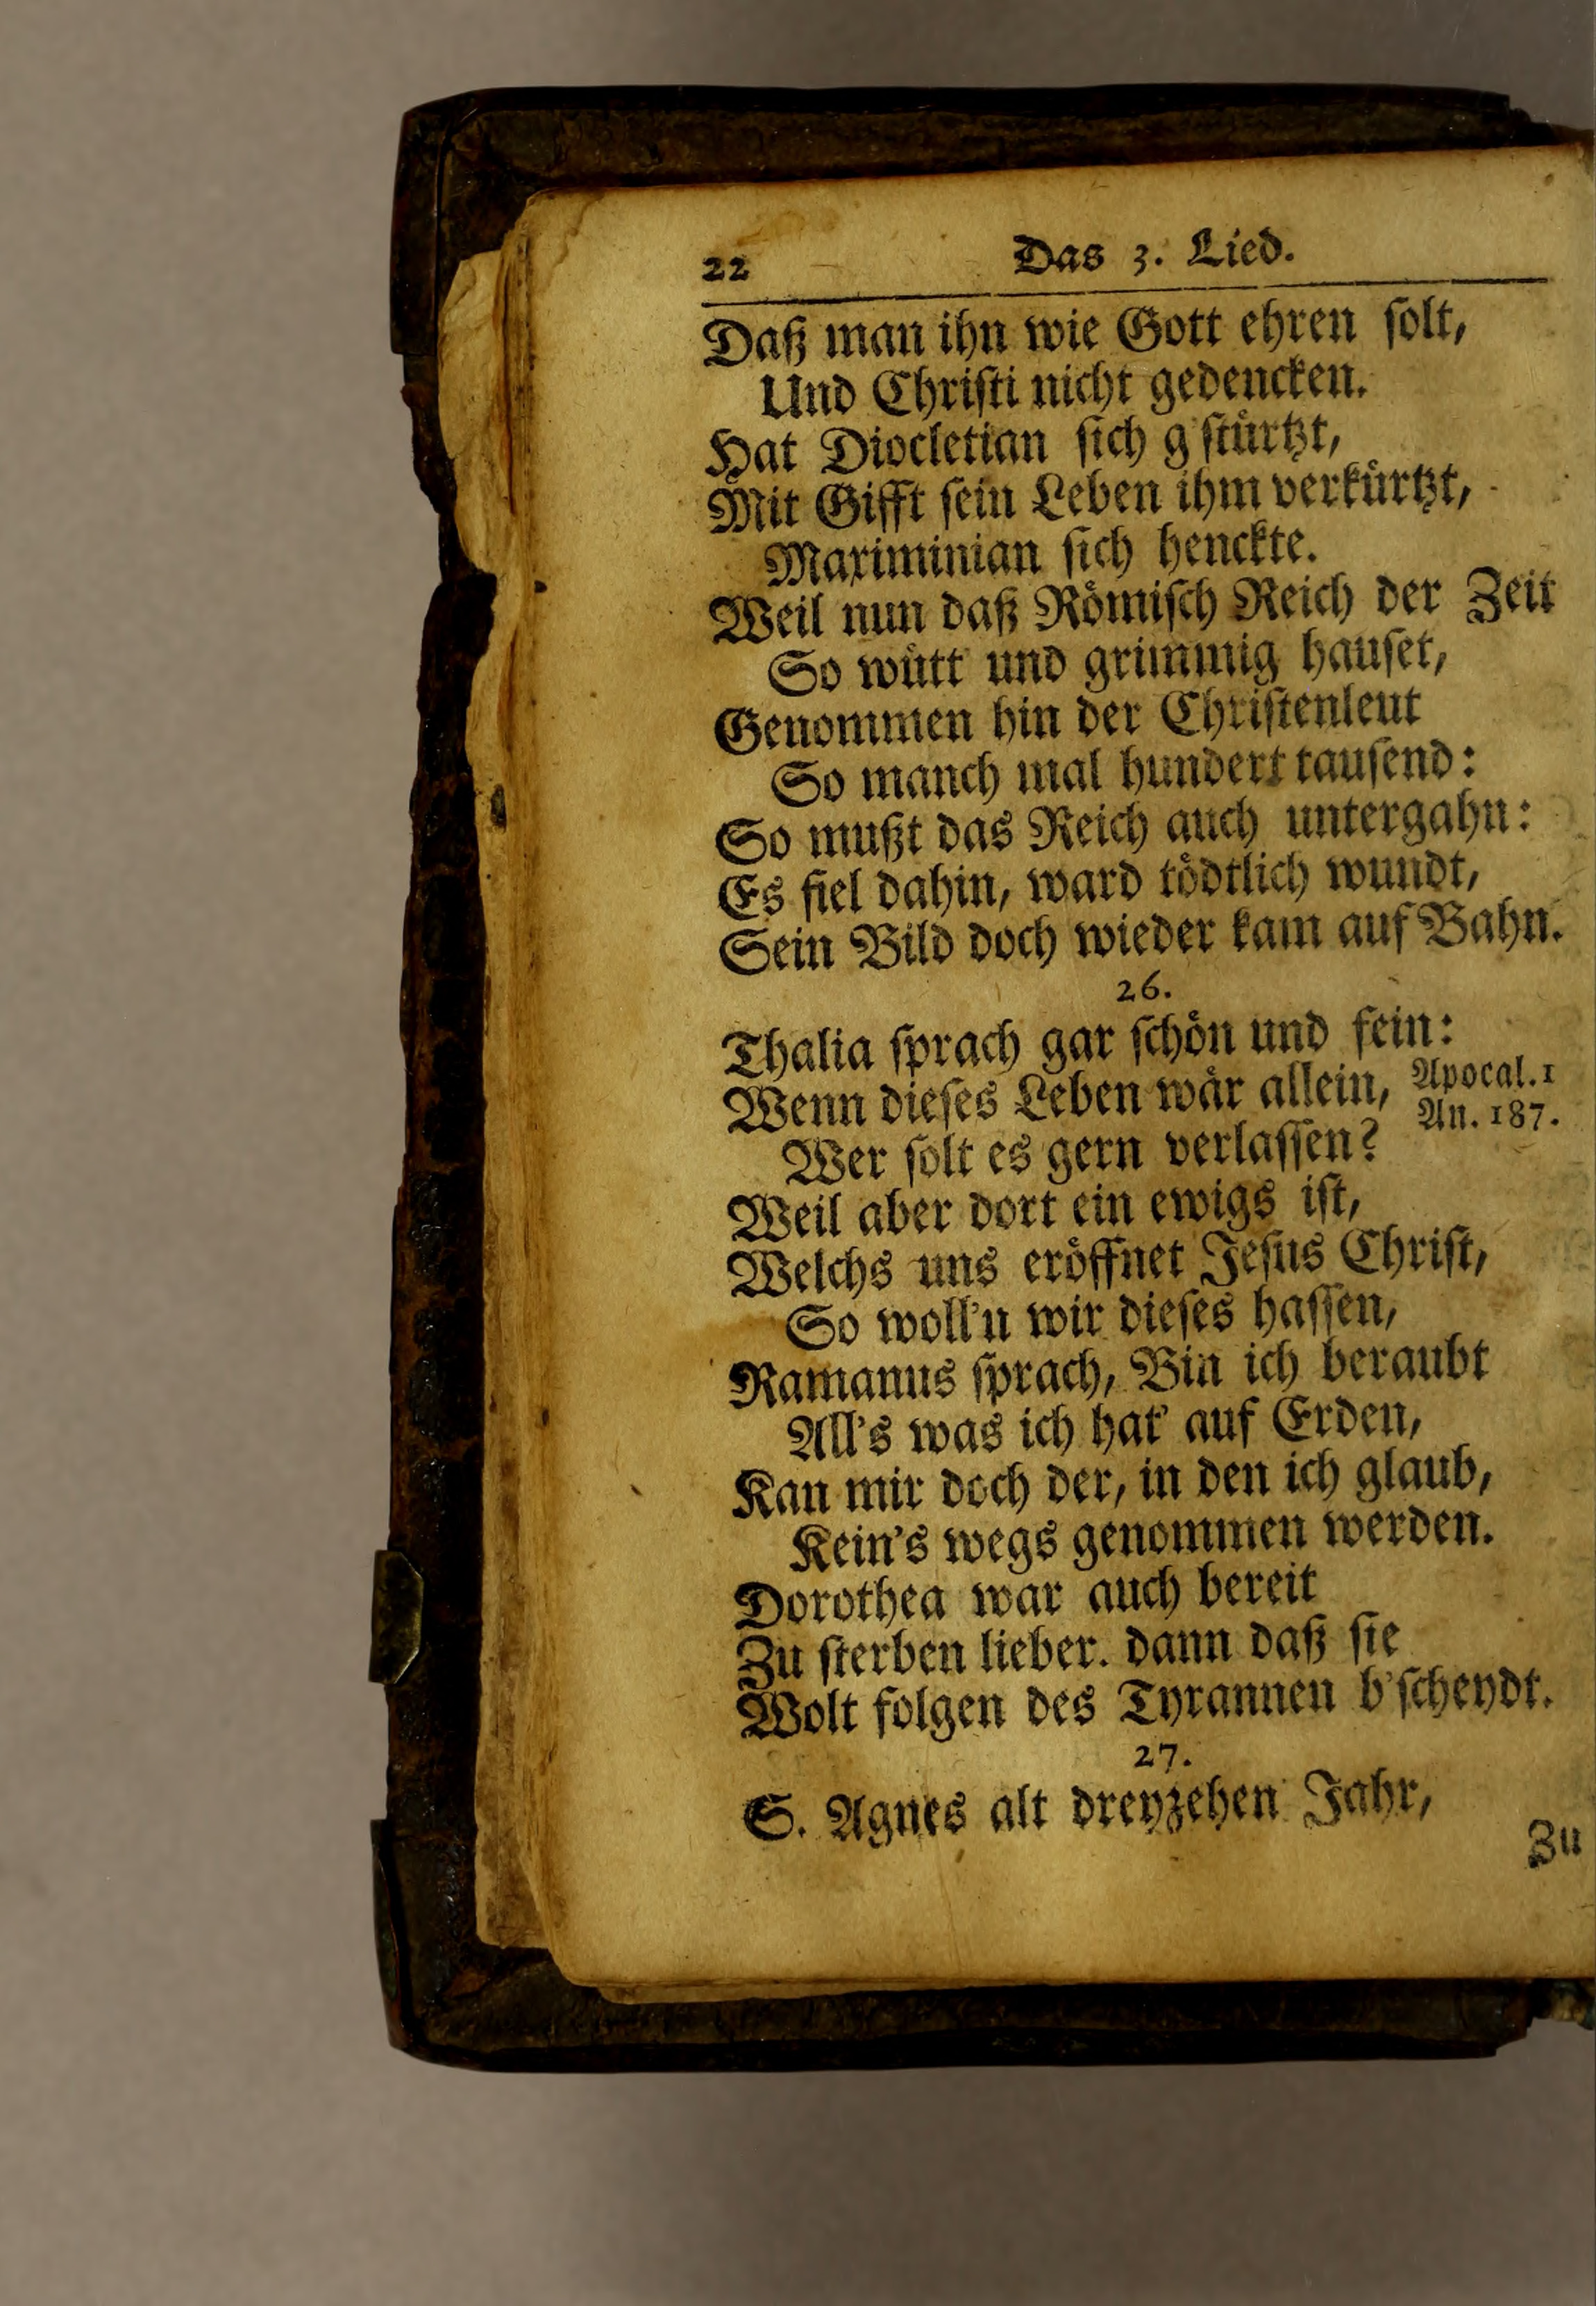 22 Das 3. Lied.
Daß man ihn wie Gott ehren ſolt,
Und Chriſti nicht gedencken.
Hat Diocletian ſich g'ſtuͤrtzt,
Mit Gifft ſein Leben ihm verkuͤrtzt,
Maximinian ſich henckte.
Weil nun daß Roͤmiſch Reich der Zeit
So wuͤtt und grimmig hauſet,
Genommen hin der Chriſtenleut
So manch mal hundert tauſend:
So mußt das Reich auch untergahn:
Es fiel dahin, ward toͤdtlich wundt,
Sein Bild doch wieder kam auf Bahn.
26.
Thalia ſprach gar ſchoͤn und fein:
Wenn dieſes Leben waͤr allein,
Apocal. 1
An. 187.
Wer ſolt es gern verlaſſen?
Weil aber dort ein ewigs iſt,
Welchs uns eroͤffnet Jeſus Chriſt,
So woll'n wir dieſes haſſen,
Ramanus ſprach, Bin ich beraubt
All's was ich hat' auf Erden,
Kan mir doch der, in den ich glaub,
Kein's wegs genommen werden.
Dorothea war auch bereit
Zu ſterben lieber. dann daß ſie
Wolt folgen des Tyrannen b'ſcheydt.
27.
S. Agnes alt dreyzehen Jahr,
Zu